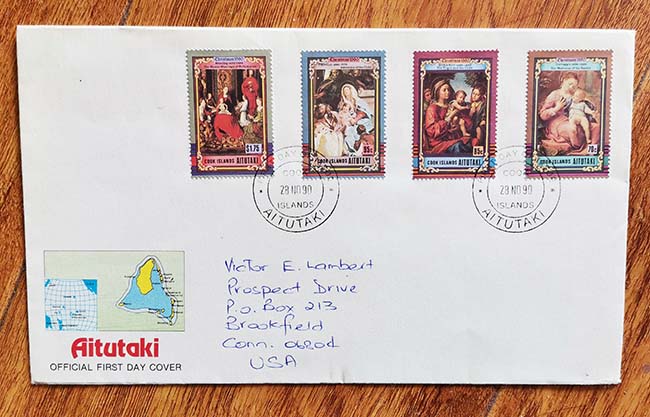 Christmas 1990
$1.75
COOK ISLANDS AITUTAKI
Christmas 1990
COOK ISLANDS AITUTAKI
Christmas 1990
COOK ISLANDS AITUTAKI
Christmas 1990
70c
COOK ISLANDS AITUTAKI
28 NO 90
ISLANDS
AITUTAKI
DAY
COO
28 NO 90
ISLANDS
AITUTAKI
Victor E. Lambert
Prospect Drive
P.O. Box 213
Brookfield
Conn. 06804
USA
Aitutaki
OFFICIAL FIRST DAY COVER